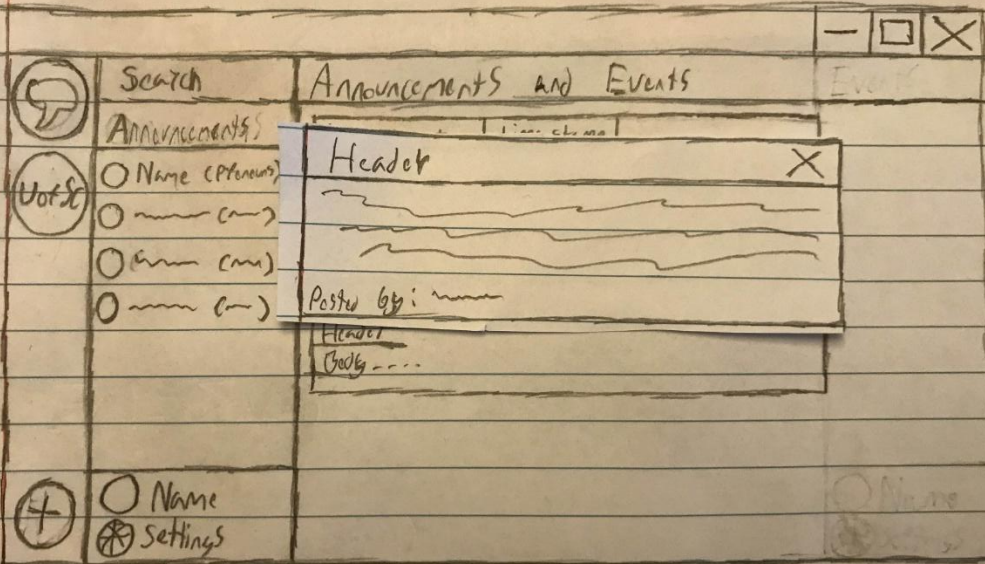 Search
Announcements and Events
Events
Announcements
Header
X
Name (Pronouns)
UofSC
Posted by:
Header
Body....
Name
Name
Settings
Settings